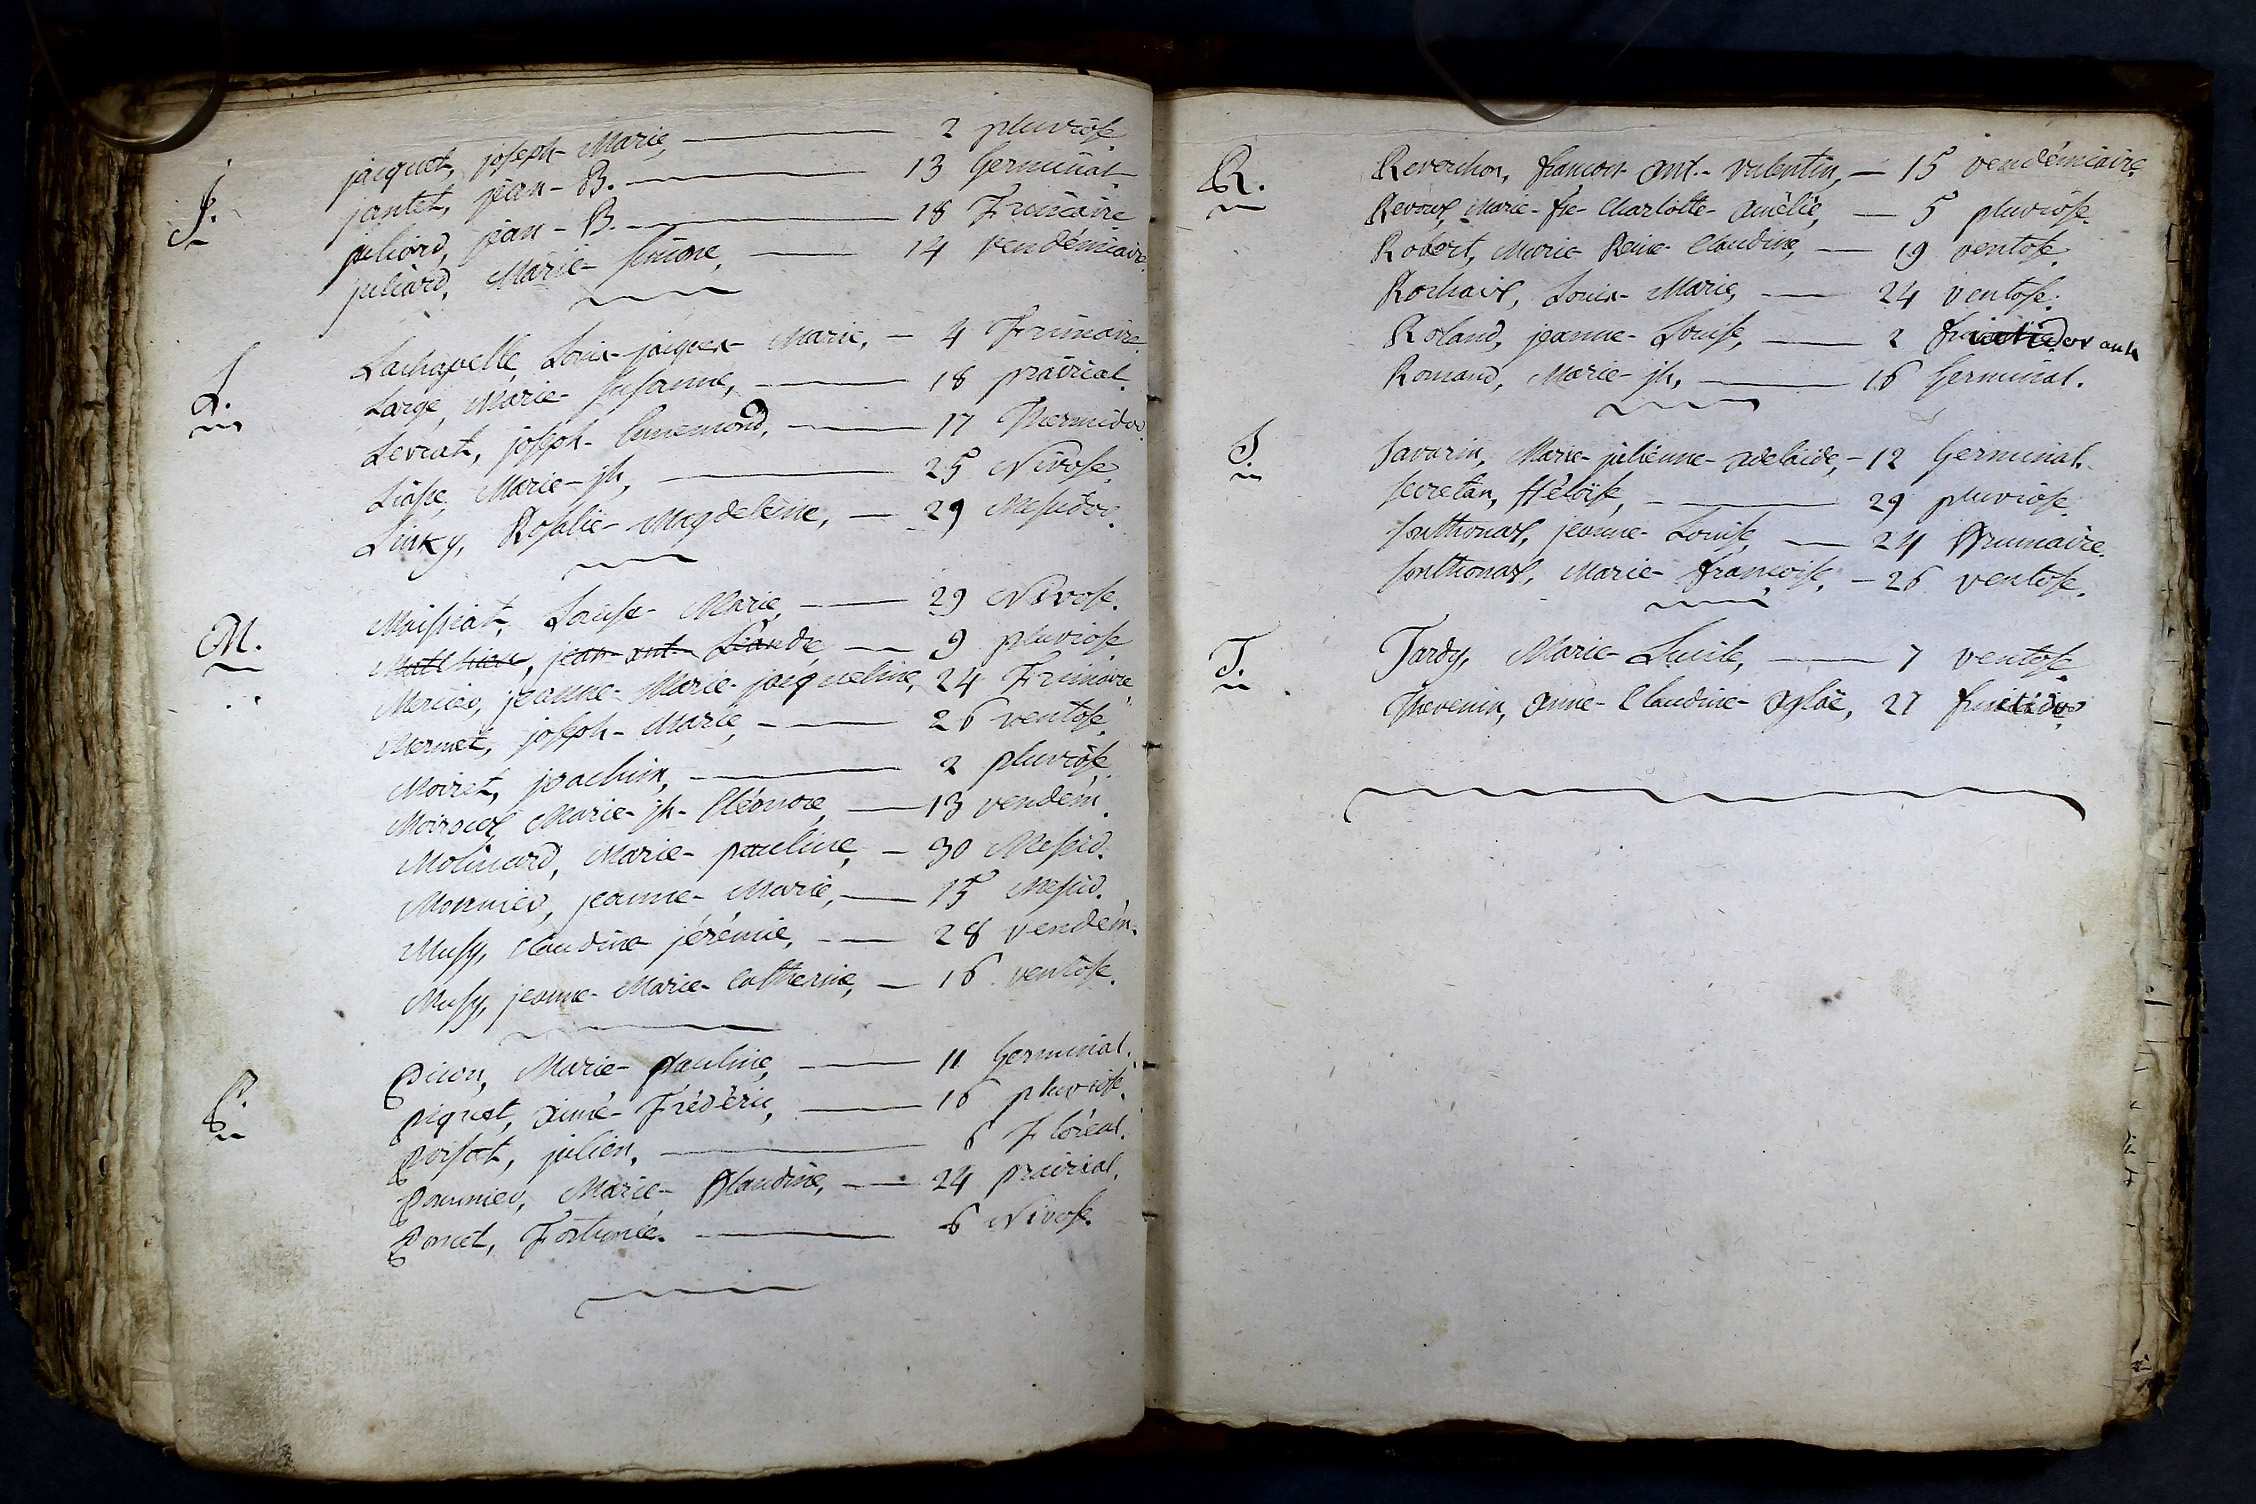 J.
jacquet, joseph-Marie, 2 pluviose
jantet, jean-B. 13 Germinal
juliard, jean-B. 18 Frimaire
juliard, Marie-Simone, 14 vendémiaire.
L.
Lachapelle, Louis-jacques-Marie, 4 Frimaire.
Large, Marie-Susanne, 18 prairial.
Levrat, joseph-Ennemond, 17 Thermidor.
Marie-jh, 25 Nivose.
Rosalie-Magdeleine, 29 Messidor.
M.
Moissiat, Louise-Marie, 29 Nivose.
Matthieu, jean-ant. 9 pluviose
Mercier, jeanne-Marie-jacqueline, 24 Frimaire
Mermet, joseph-Marie, 26 ventose.
Moiret, joachim, 2 pluviose.
Marie-jh-Eléonore, 13 vendém.
Molinard, Marie-pauline, 30 Messid.
Monnier, jeanne-Marie, 15 Messid.
Mussy, Claudine jérémie, 28 vendém.
Mussy, jeanne-Marie-Catherine, 16 ventose.
P.
Picon, Marie-pauline, 11 Germinal.
Piquet, aimé-Frédéric, 16 pluviose.
Poisat, julien, 6 Floréal.
Pommier, Marie-Blandine, 24 prairial.
Poncet, Fortunée. 6 Nivose.
R.
Reverchon, francois ant.-valentin, 15 vendémiaire.
Revoux, Marie-fse-Charlotte-amélie, 5 pluviose.
Robert, Marie Reine Claudine, 19 ventose.
Rochaix, Louis-Marie, 24 ventose.
Roland, jeanne-Louise, 2 fructidor
Romand, Marie-jh, 16 Germinal.
S.
Savarin, Marie-julienne-adelaide, 12 Germinal.
Secretan, Héloïse, 29 pluviose.
Sonthonax, jeanne-Louise, 24 Brumaire.
Sonthonax, Marie-françoise, 26 ventose.
T.
Tardy, Marie-Lucile, 7 ventose
Thevenin, anne-Claudine-aglaë, 27 fructidor